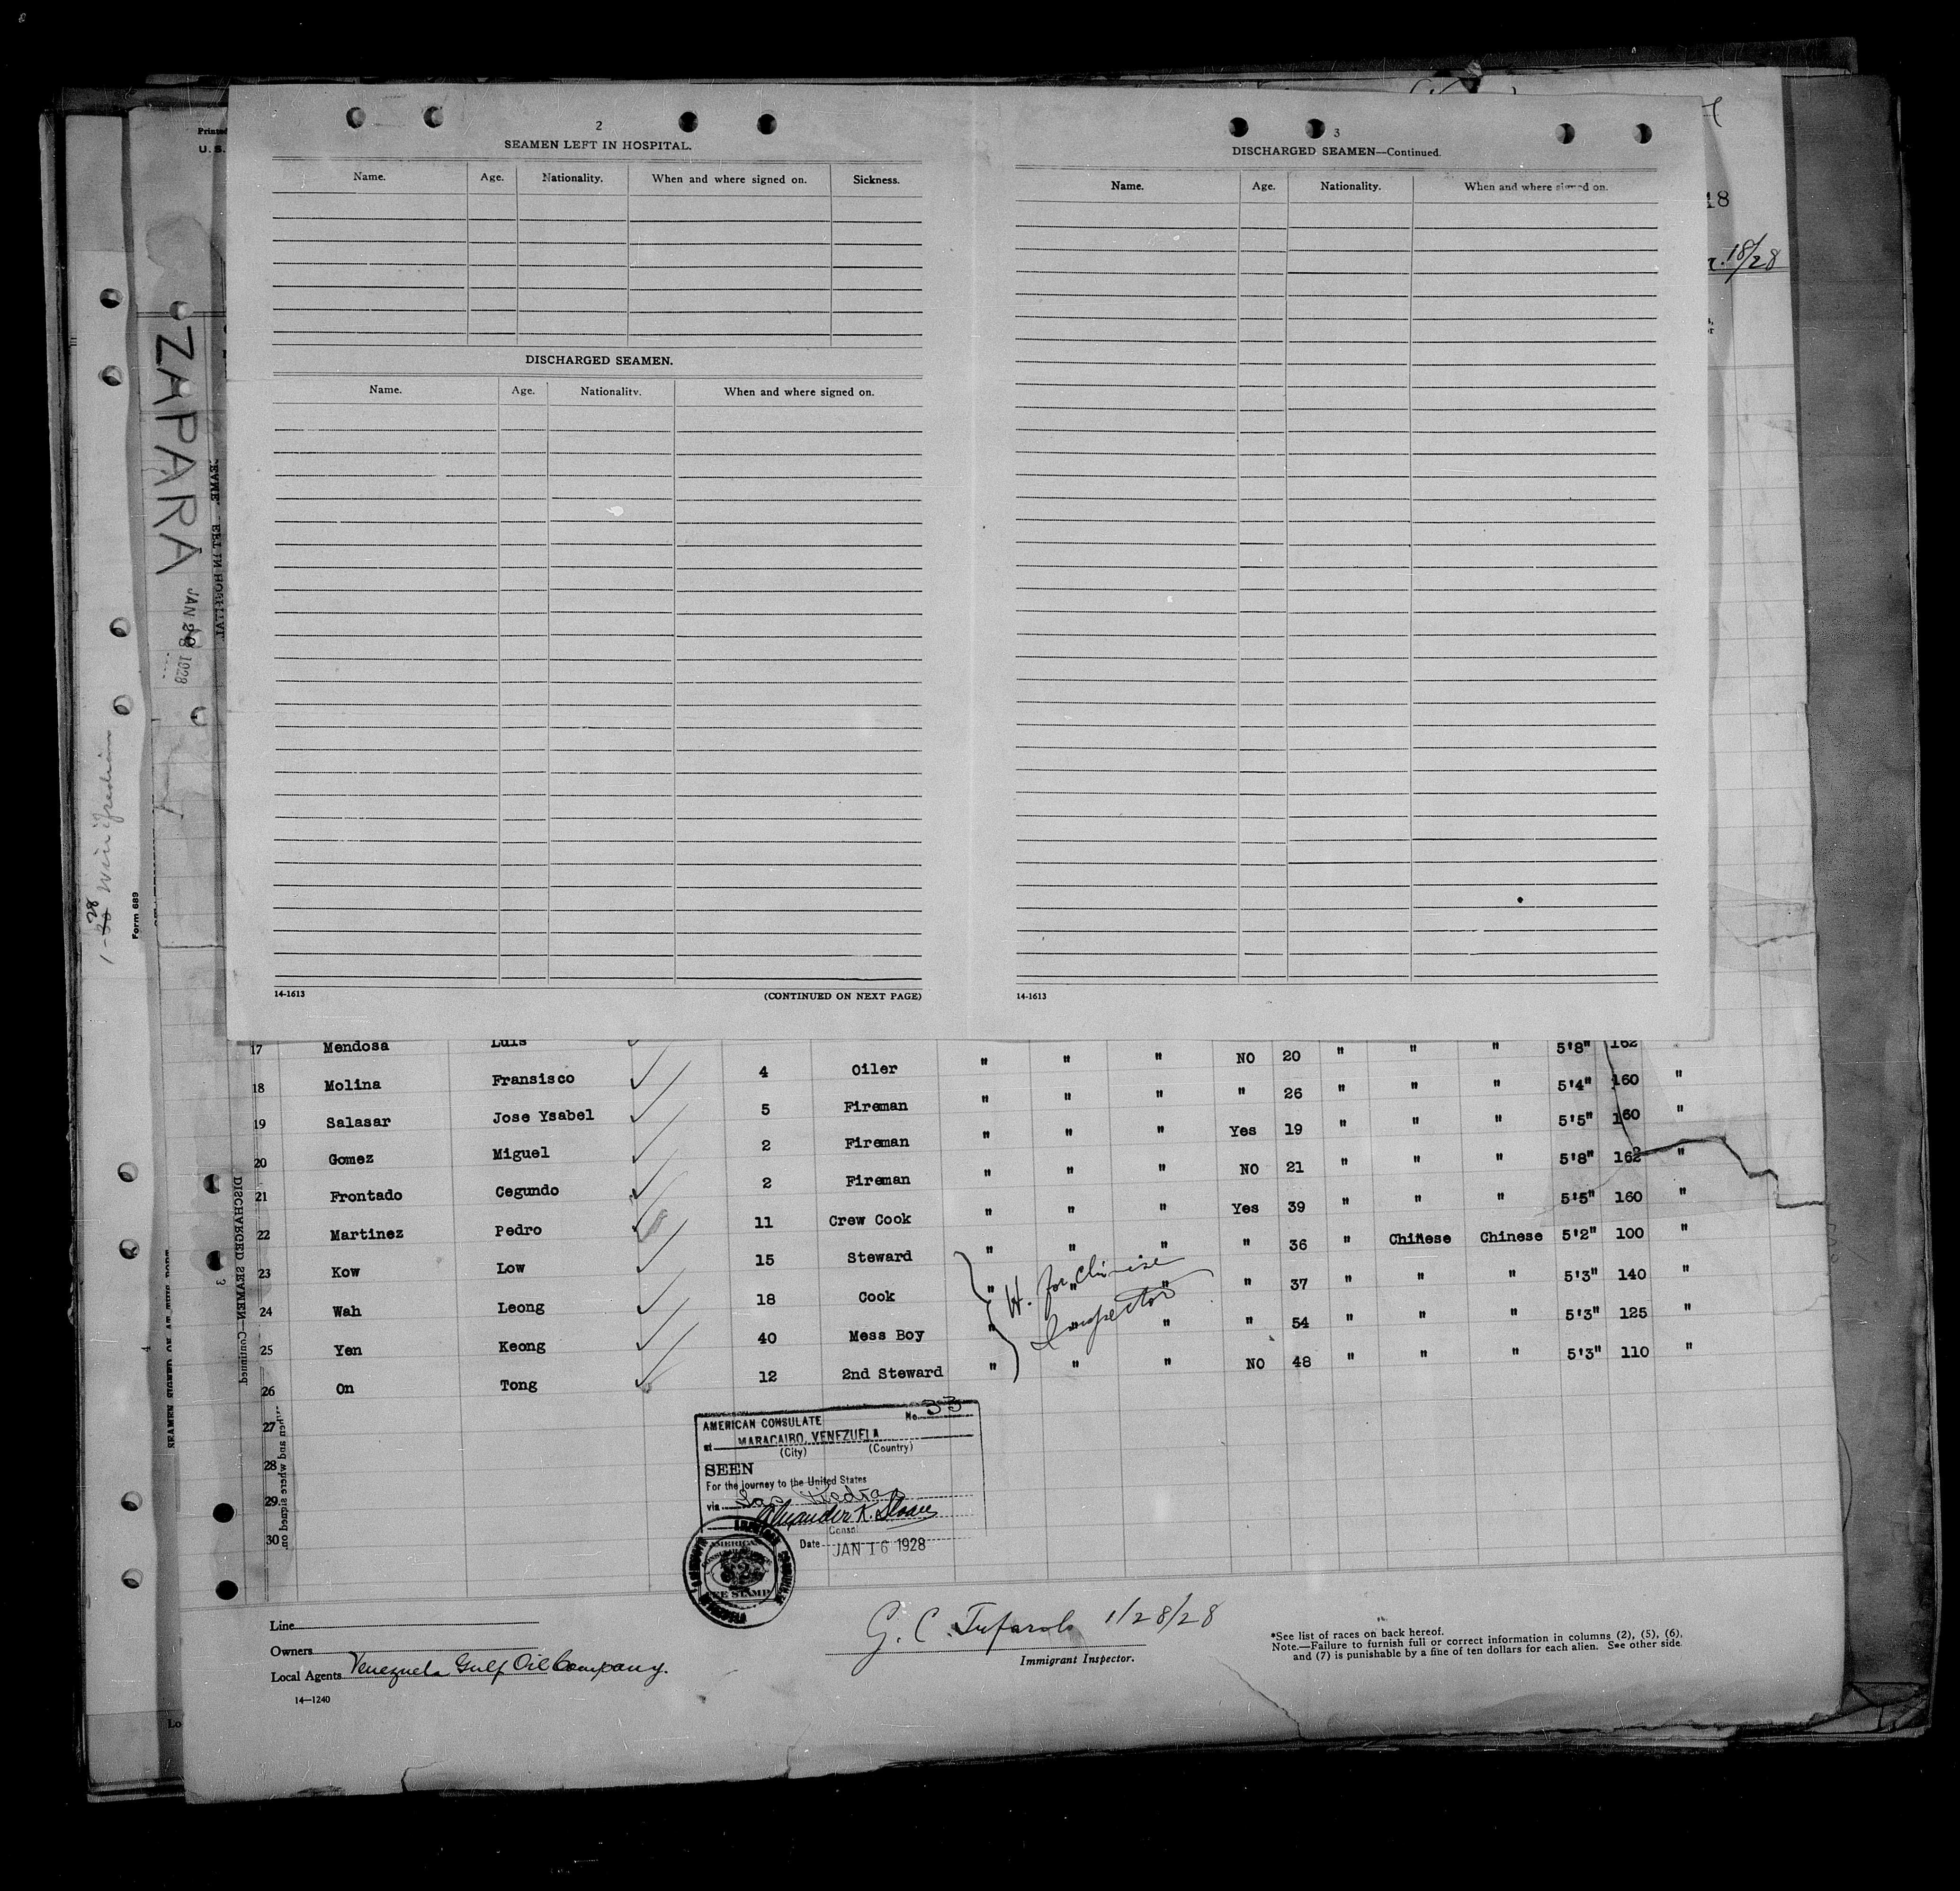 2
SEAMEN LEFT IN HOSPITAL.
Name. Age. Nationality. When and where signed on. Sickness.
DISCHARGED SEAMEN.
Name. Age. Nationality. When and where signed on.
14-1613 (CONTINUED ON NEXT PAGE)
3
DISCHARGED SEAMEN—Continued.
Name. Age. Nationality. When and where signed on.
14-1613
Printed
U. S.
18
18/28
ZAPARA
JAN 28 1928
Form 689
DISCHARGED SEAMEN—Continued.
17 Mendosa Luis 4 Oiler " " " NO 20 " " " 5'8" 162 "
18 Molina Fransisco 5 Fireman " " " " 26 " " " 5'4" 160 "
19 Salasar Jose Ysabel 2 Fireman " " " Yes 19 " " " 5'5" 160 "
20 Gomez Miguel 2 Fireman " " " NO 21 " " " 5'8" 162 "
21 Frontado Cegundo 11 Crew Cook " " " Yes 39 " " " 5'5" 160 "
22 Martinez Pedro 15 Steward " " " " 36 " Chinese Chinese 5'2" 100 "
23 Kow Low 18 Cook " " " " 37 " " " 5'3" 140 "
24 Wah Leong 40 Mess Boy " " " " 54 " " " 5'3" 125 "
25 Yen Keong 12 2nd Steward " " " NO 48 " " " 5'3" 110 "
26 On Tong
H. for Chinese
Inspector
27
28
29
30
AMERICAN CONSULATE No. 33
at MARACAIBO, VENEZUELA
(City) (Country)
SEEN
For the journey to the United States
via Las Piedras
Alexander K. Sloan
Consul
Date JAN 16 1928
AMERICAN
FEE STAMP
Line
Owners
Local Agents Venezuela Gulf Oil Company.
14—1240
G. C. 1/28/28
Immigrant Inspector.
*See list of races on back hereof.
Note.—Failure to furnish full or correct information in columns (2), (5), (6),
and (7) is punishable by a fine of ten dollars for each alien. See other side